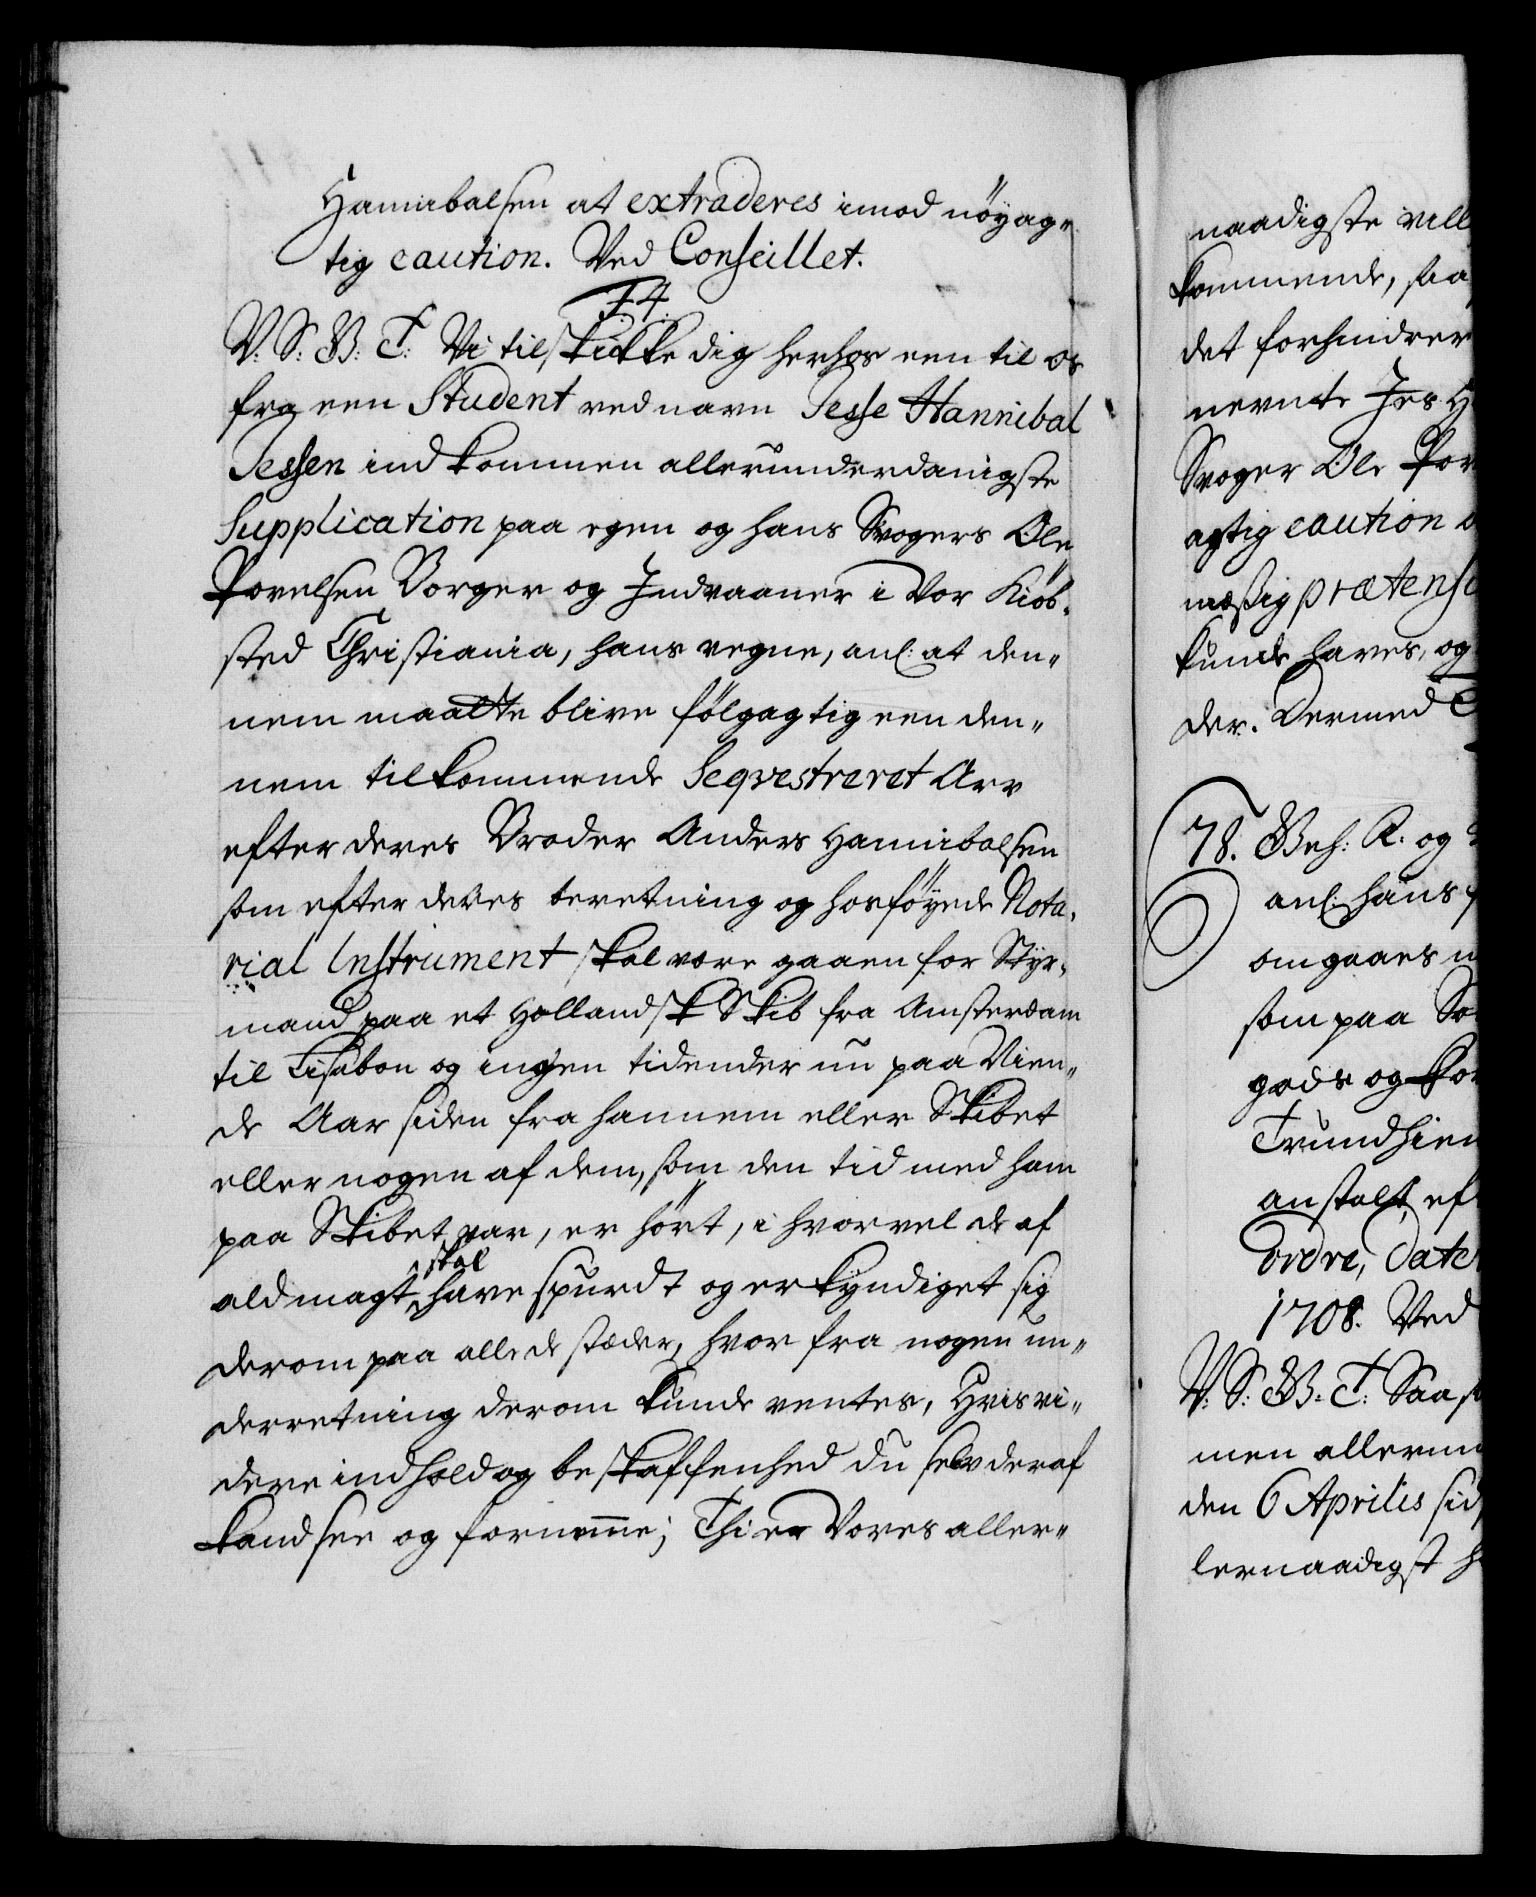 Hannibalsen at extraderes imod nöyag-
tig caution. Ved Conseillet.
F4.
V: S: G: T: Vi tilskikke dig herhos een til os
fra een Student ved navn Jesse Hannibal
Jessen indkommen allerunderdanigste
Supplication paa egen og hans Svogers Ole
Povelsen Borger og Indvaaner i Vor Kiöb-
sted Christiania, hans vegne, anl: at den-
nem maatte blive fölgagtig een den-
nem tilkommende Seqvestreret Arv
efter deres Broder Anders Hannibalsen
som efter deres beretning og hosföyede Nota-
rial Instrument skal være gaaen for Styr-
mand paa et Hollandsk Skib fra Amsterdam
til Lisabon og ingen tidender nu paa Nien-
de Aar siden fra hannem eller Skibet
eller nogen af dem, som den tid med ham
paa Skibet var, er hört, i hvorvel de af
skal
ald magt have spurdt og erkyndiget sig
derom paa alle de stæder, hvor fra nogen un-
derretning derom kunde ventes, Hvis vi-
dere indhold og beskaffenhed du selv deraf
kand see og fornemme; Thi er Vores aller-
naadigste vill
kommende, saa
det forhindrer
nevnte Jes H
Svoger Ole Pov
agtig caution
mæssig prætensi
kunde haves, og
der. Dermed
78. Bes: R. og
anl: hans
omgaaes
som paa
gods og
Trundhiem
anstalt, ef
ordre, Date
1708. Ved
V: S: G: T: Saa
men allerun
den 6 Aprilis sid
lernaadigst